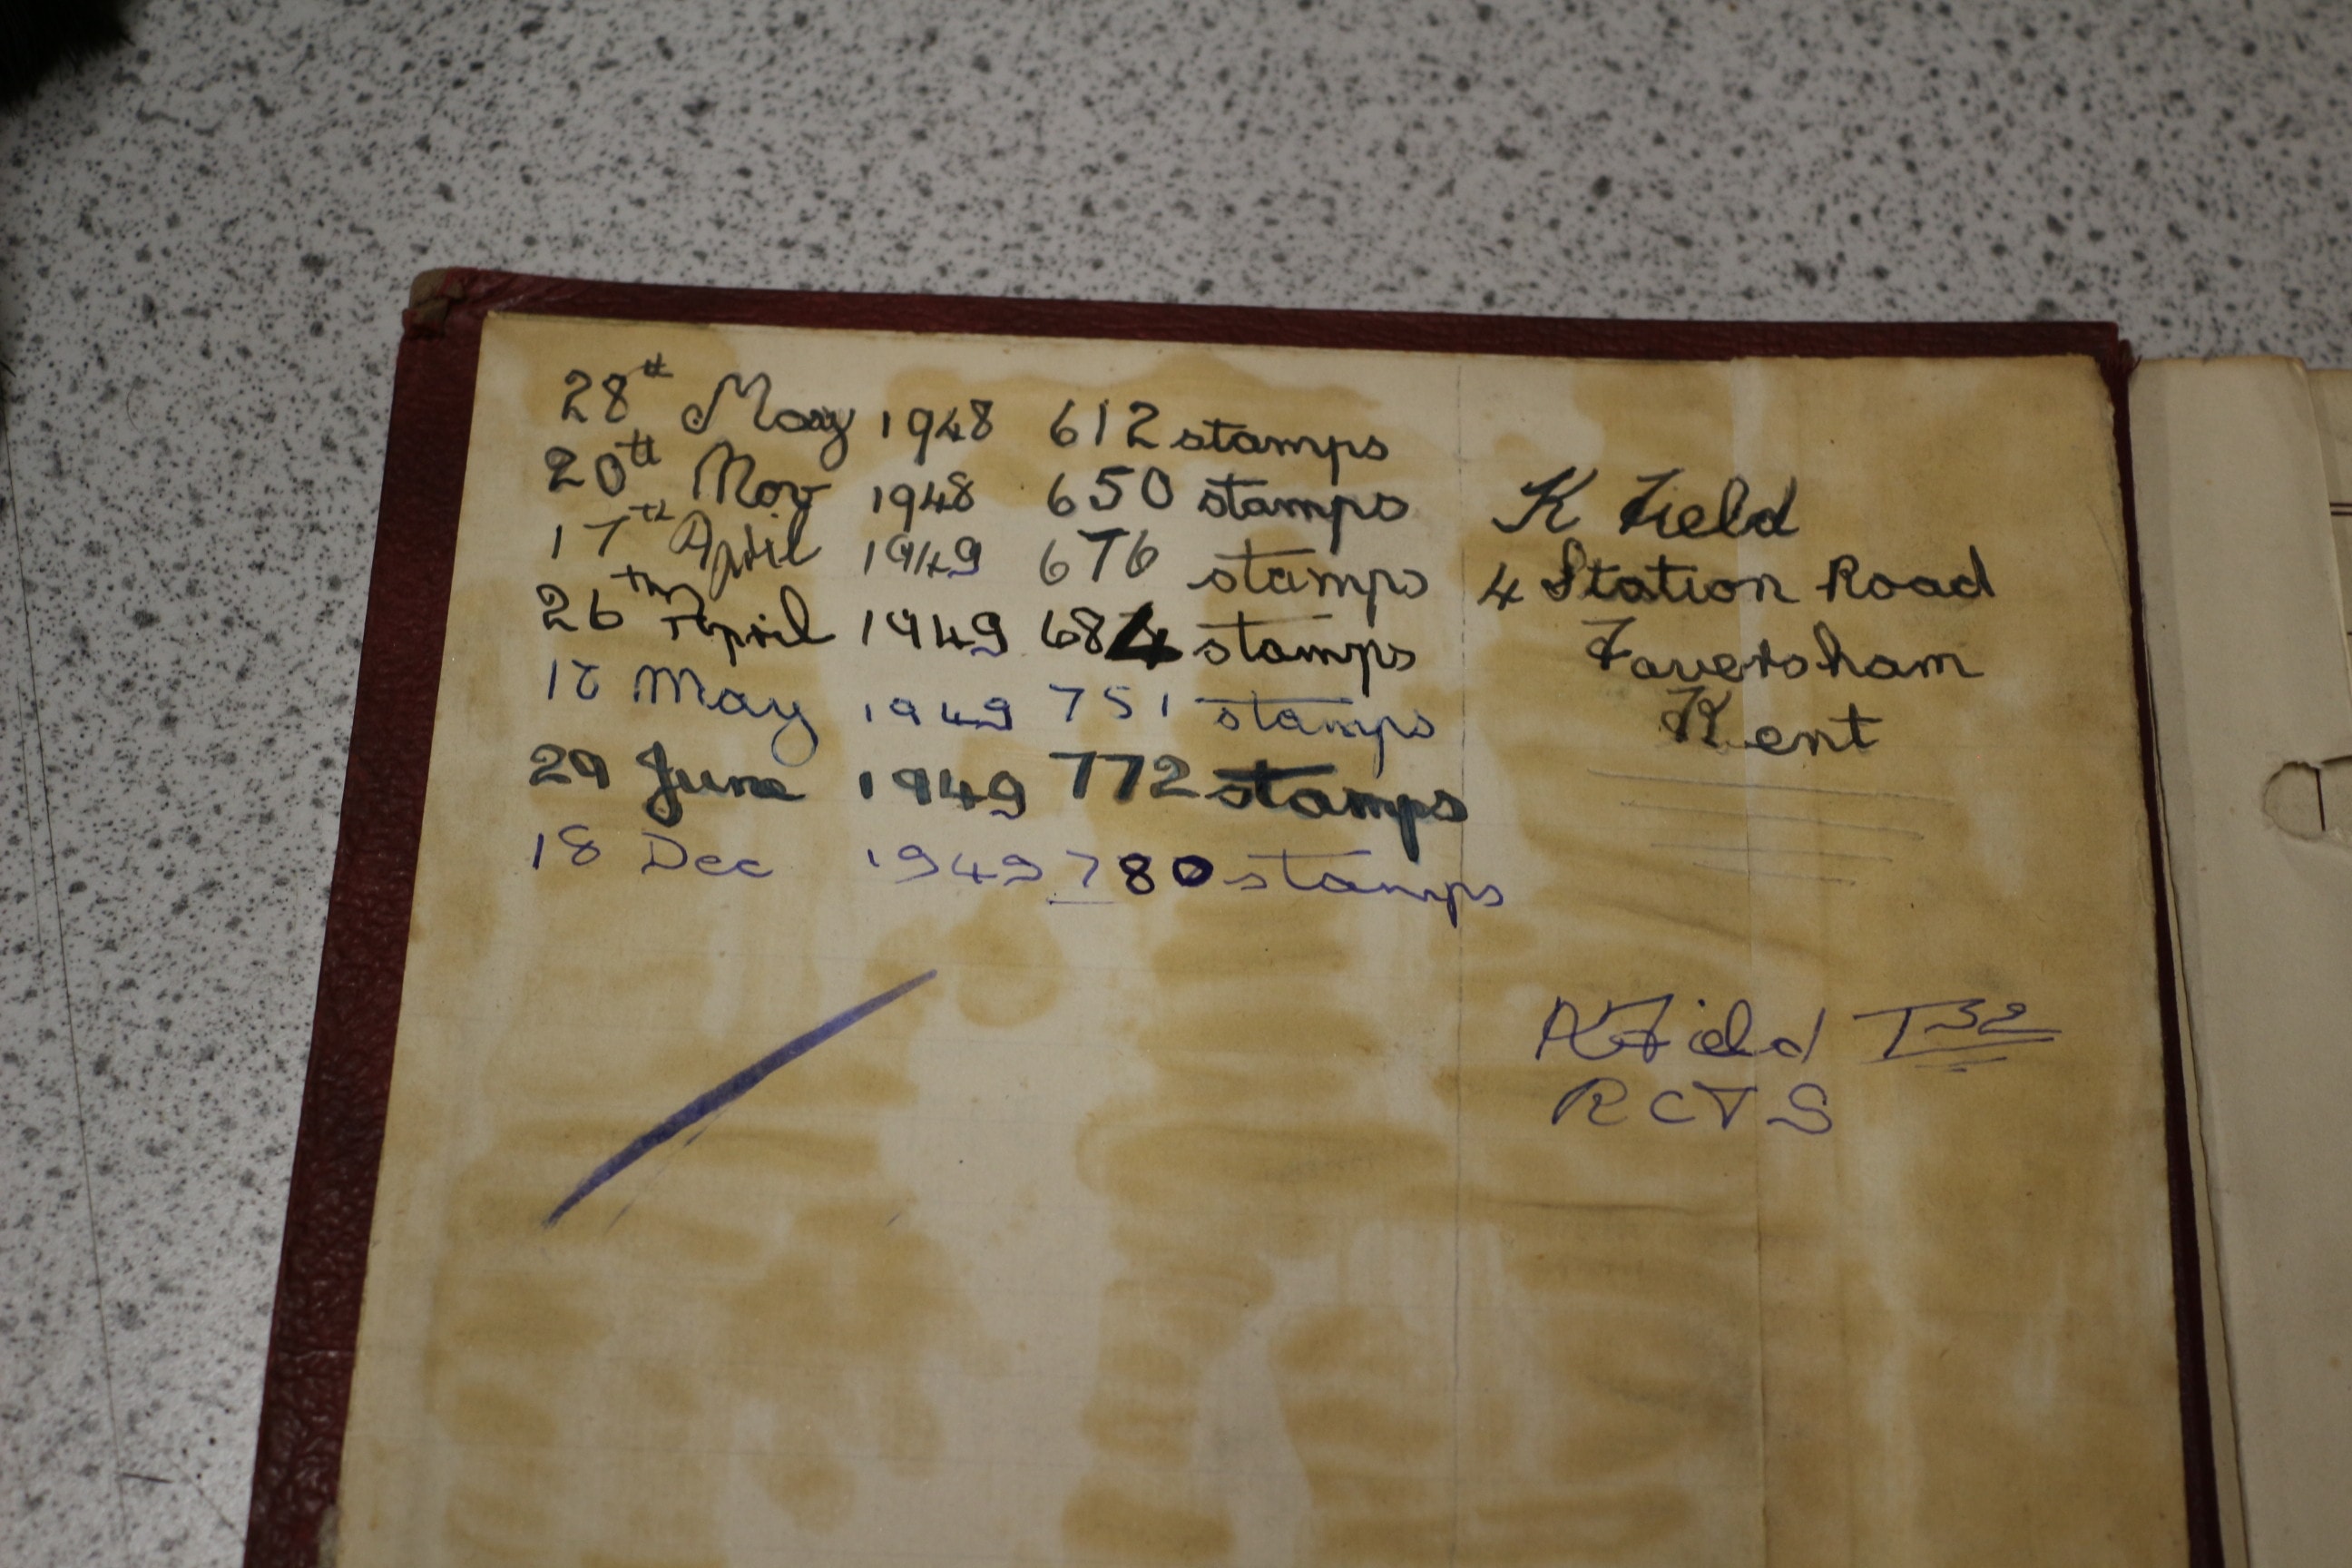 28th May 1948 612 stamps
20th Nov 1948 650 stamps
17th April 1949 676 stamps
26th April 1949 684 stamps
May 1949 751 stamps
29 June 1949 772 stamps
18 Dec 1949 780 stamps
K Field
4 Station Road
Faversham
Kent
K Field T32
RCTS